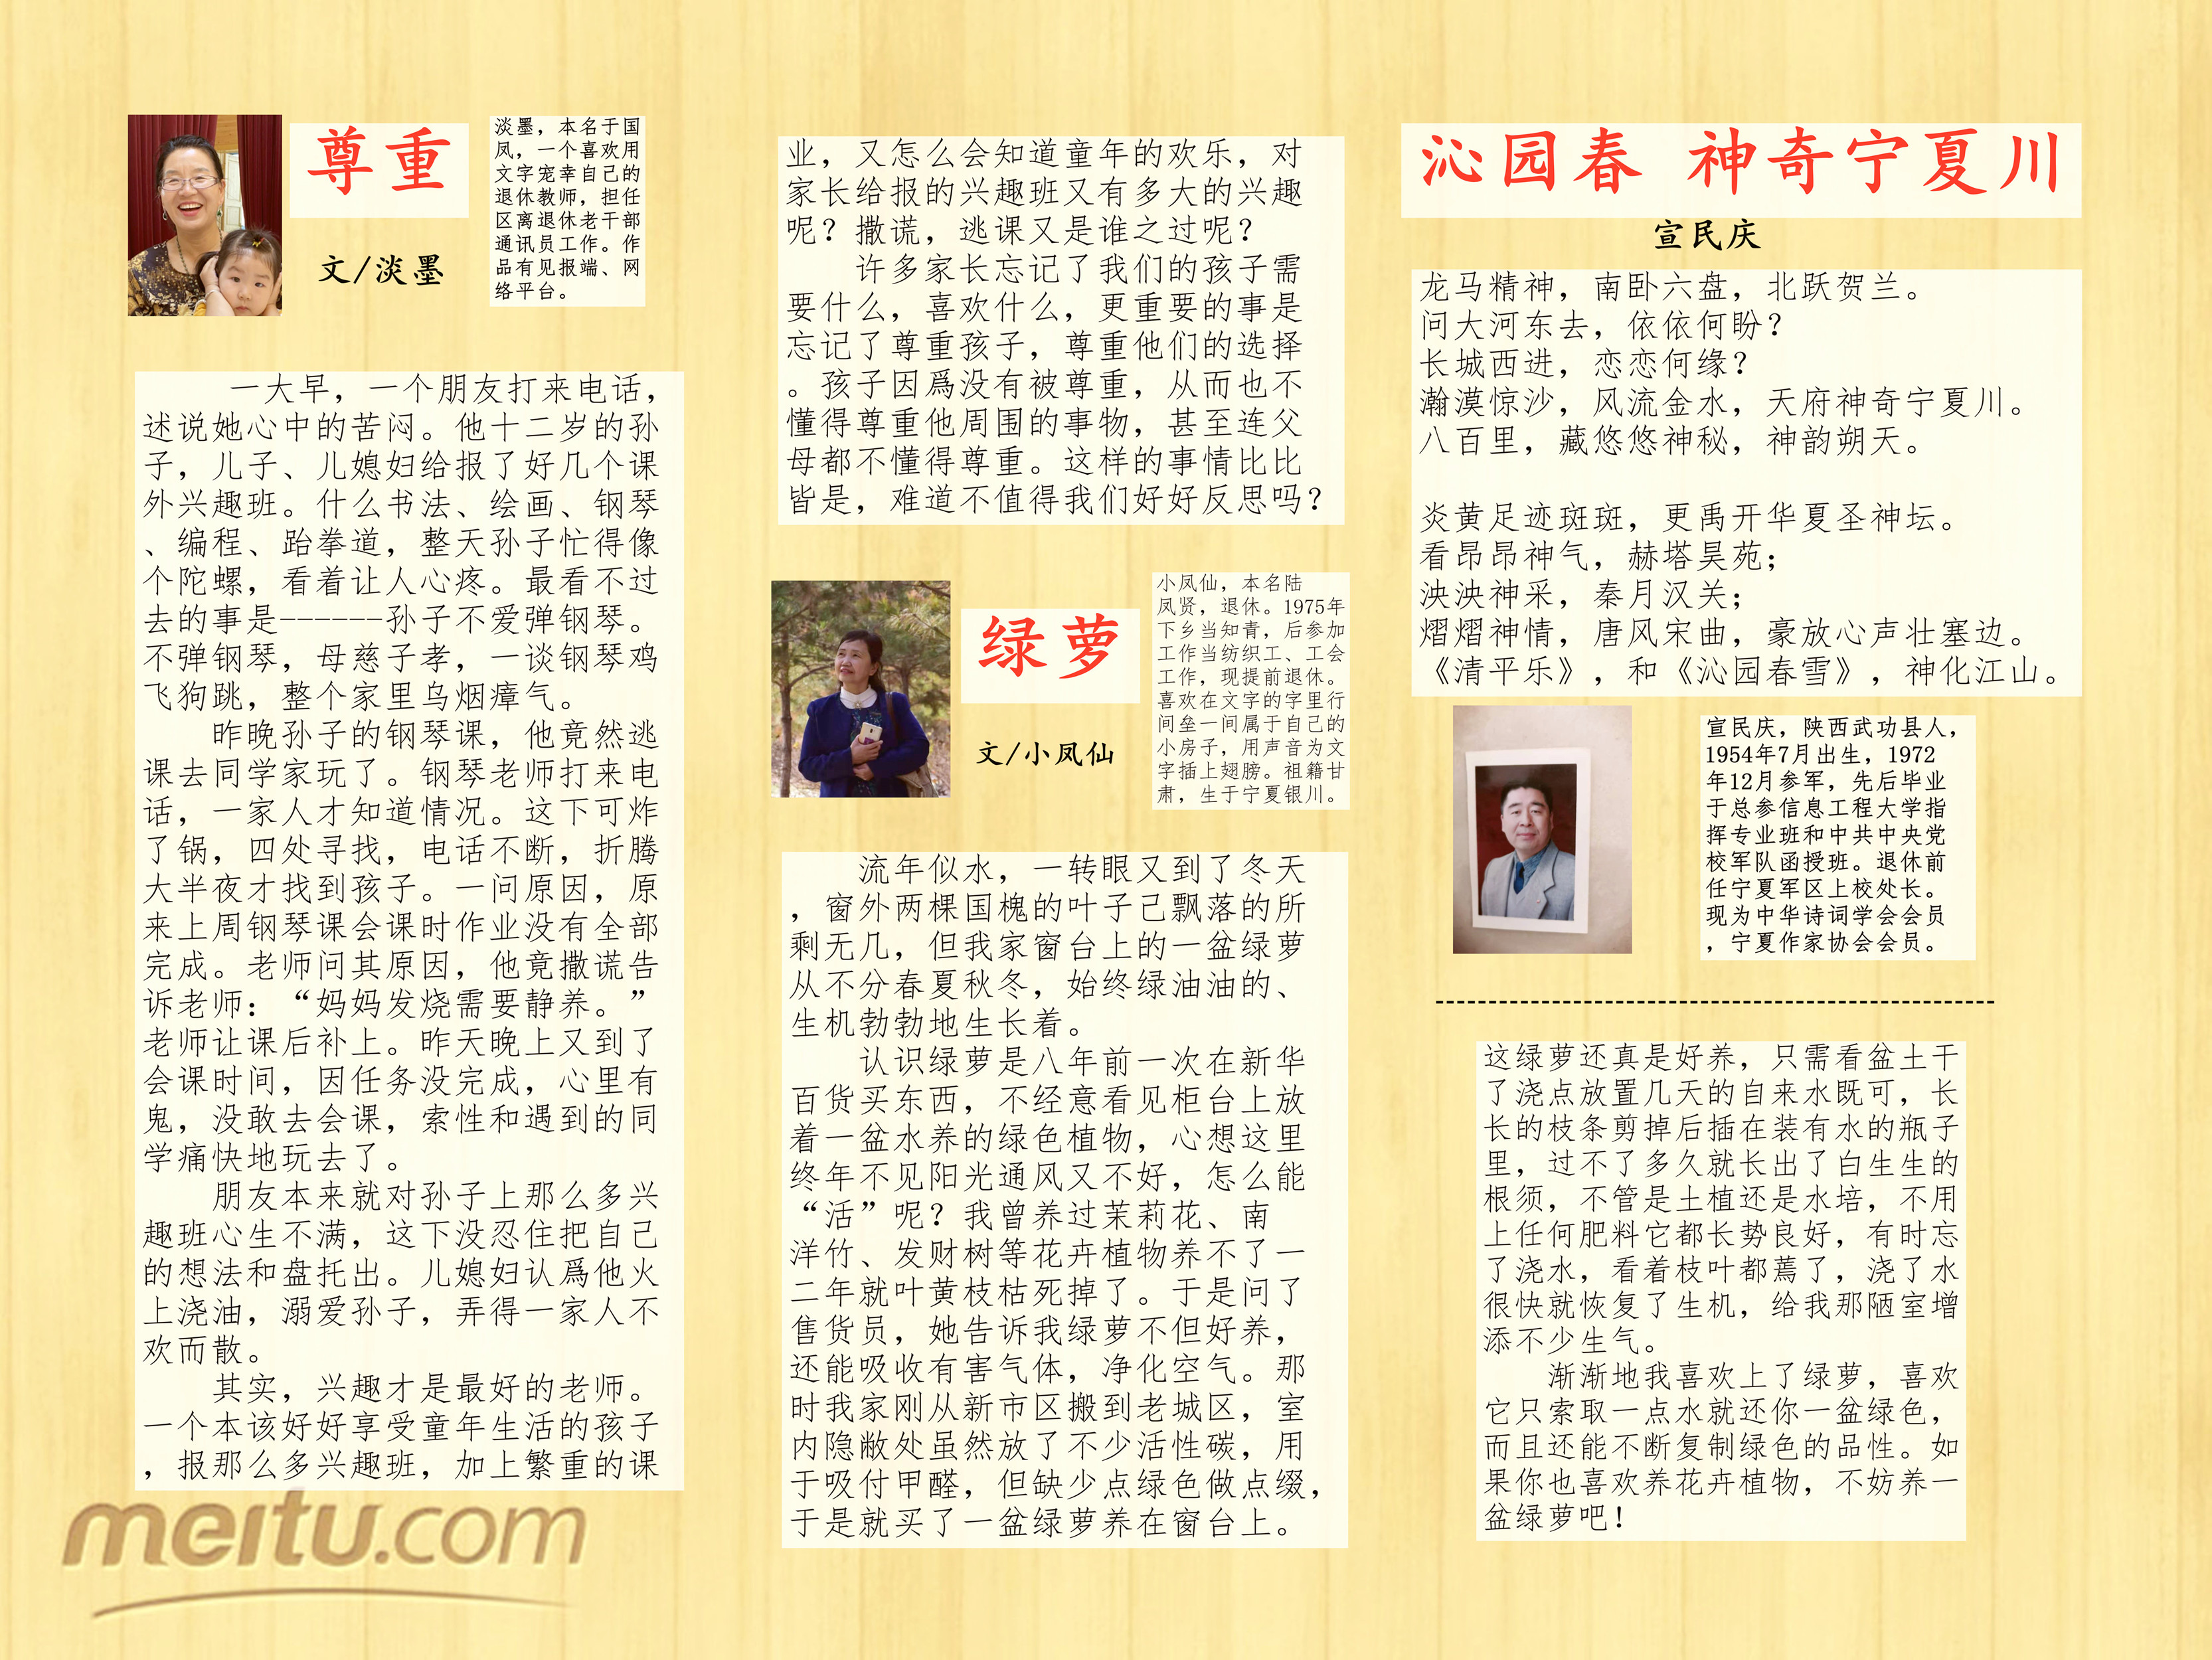 尊重
文/淡墨
淡墨，本名于国
凤，一个喜欢用
文字宠幸自己的
退休教师，担任
区离退休老干部
通讯员工作。作
品有见报端、网
络平台。
一大早，一个朋友打来电话，
述说她心中的苦闷。他十二岁的孙
子，儿子、儿媳妇给报了好几个课
外兴趣班。什么书法、绘画、钢琴
、编程、跆拳道，整天孙子忙得像
个陀螺，看着让人心疼。最看不过
去的事是------孙子不爱弹钢琴。
不弹钢琴，母慈子孝，一谈钢琴鸡
飞狗跳，整个家里乌烟瘴气。
昨晚孙子的钢琴课，他竟然逃
课去同学家玩了。钢琴老师打来电
话，一家人才知道情况。这下可炸
了锅，四处寻找，电话不断，折腾
大半夜才找到孩子。一问原因，原
来上周钢琴课会课时作业没有全部
完成。老师问其原因，他竟撒谎告
诉老师：“妈妈发烧需要静养。”
老师让课后补上。昨天晚上又到了
会课时间，因任务没完成，心里有
鬼，没敢去会课，索性和遇到的同
学痛快地玩去了。
朋友本来就对孙子上那么多兴
趣班心生不满，这下没忍住把自己
的想法和盘托出。儿媳妇认爲他火
上浇油，溺爱孙子，弄得一家人不
欢而散。
其实，兴趣才是最好的老师。
一个本该好好享受童年生活的孩子
，报那么多兴趣班，加上繁重的课
业，又怎么会知道童年的欢乐，对
家长给报的兴趣班又有多大的兴趣
呢？撒谎，逃课又是谁之过呢？
许多家长忘记了我们的孩子需
要什么，喜欢什么，更重要的事是
忘记了尊重孩子，尊重他们的选择
。孩子因爲没有被尊重，从而也不
懂得尊重他周围的事物，甚至连父
母都不懂得尊重。这样的事情比比
皆是，难道不值得我们好好反思吗？
绿萝
文/小凤仙
小凤仙，本名陆
凤贤，退休。1975年
下乡当知青，后参加
工作当纺织工、工会
工作，现提前退休。
喜欢在文字的字里行
间垒一间属于自己的
小房子，用声音为文
字插上翅膀。祖籍甘
肃，生于宁夏银川。
流年似水，一转眼又到了冬天
，窗外两棵国槐的叶子己飘落的所
剩无几，但我家窗台上的一盆绿萝
从不分春夏秋冬，始终绿油油的、
生机勃勃地生长着。
认识绿萝是八年前一次在新华
百货买东西，不经意看见柜台上放
着一盆水养的绿色植物，心想这里
终年不见阳光通风又不好，怎么能
“活”呢？我曾养过茉莉花、南
洋竹、发财树等花卉植物养不了一
二年就叶黄枝枯死掉了。于是问了
售货员，她告诉我绿萝不但好养，
还能吸收有害气体，净化空气。那
时我家刚从新市区搬到老城区，室
内隐敝处虽然放了不少活性碳，用
于吸付甲醛，但缺少点绿色做点缀，
于是就买了一盆绿萝养在窗台上。
沁园春 神奇宁夏川
宣民庆
龙马精神，南卧六盘，北跃贺兰。
问大河东去，依依何盼？
长城西进，恋恋何缘？
瀚漠惊沙，风流金水，天府神奇宁夏川。
八百里，藏悠悠神秘，神韵朔天。
炎黄足迹斑斑，更禹开华夏圣神坛。
看昂昂神气，赫塔昊苑；
泱泱神采，秦月汉关；
熠熠神情，唐风宋曲，豪放心声壮塞边。
《清平乐》，和《沁园春雪》，神化江山。
宣民庆，陕西武功县人，
1954年7月出生，1972
年12月参军，先后毕业
于总参信息工程大学指
挥专业班和中共中央党
校军队函授班。退休前
任宁夏军区上校处长。
现为中华诗词学会会员
，宁夏作家协会会员。
这绿萝还真是好养，只需看盆土干
了浇点放置几天的自来水既可，长
长的枝条剪掉后插在装有水的瓶子
里，过不了多久就长出了白生生的
根须，不管是土植还是水培，不用
上任何肥料它都长势良好，有时忘
了浇水，看着枝叶都蔫了，浇了水
很快就恢复了生机，给我那陋室增
添不少生气。
渐渐地我喜欢上了绿萝，喜欢
它只索取一点水就还你一盆绿色，
而且还能不断复制绿色的品性。如
果你也喜欢养花卉植物，不妨养一
盆绿萝吧！
meitu.com